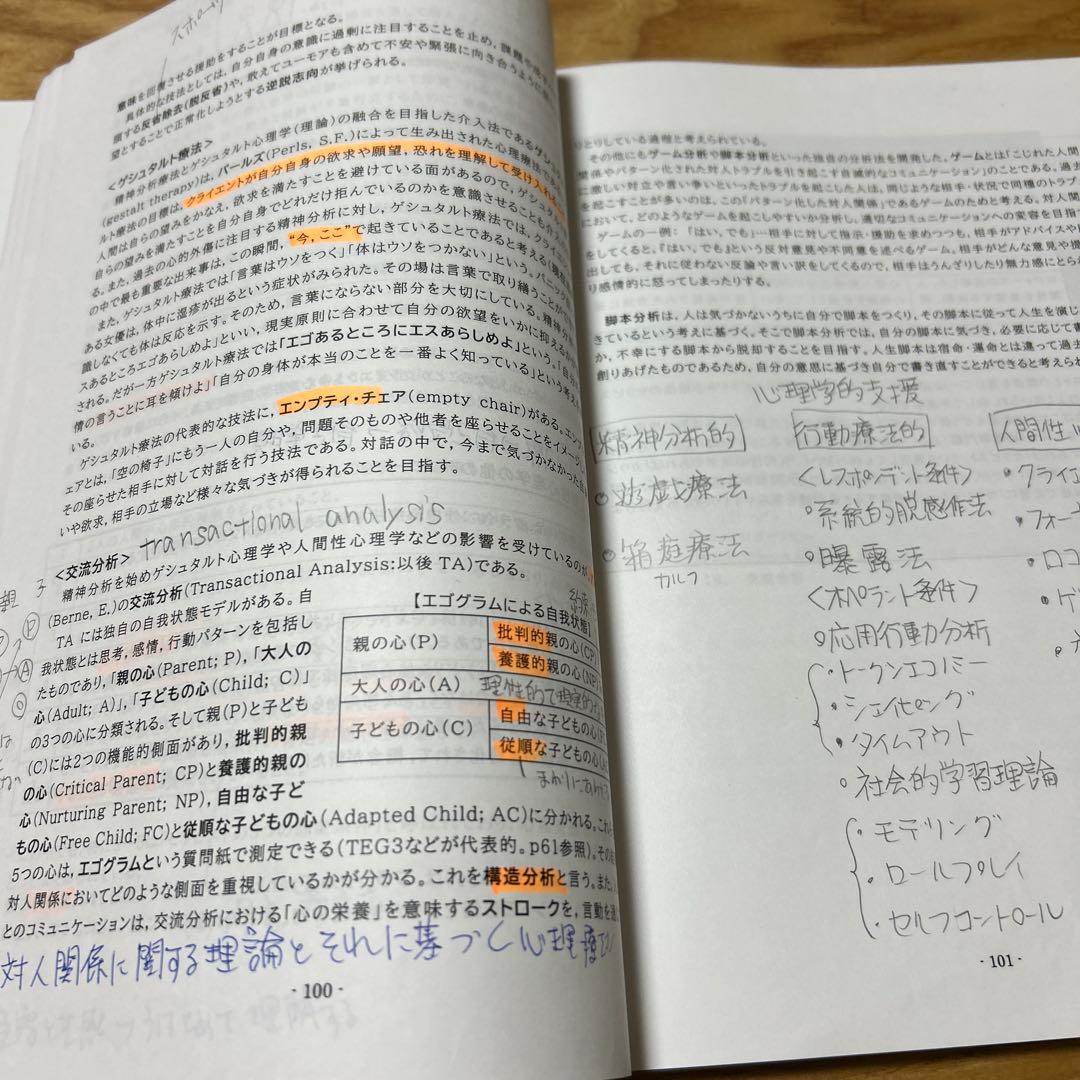 スポーツ
意味を回復させる援助をすることが目標となる。
具体的な技法としては、自分自身の意識に過剰に注目することを止め、課題や
関する反省除去(脱反省)や、敢えてユーモアも含めて不安や緊張に向き合うように
望とすることで正常化しようとする逆説志向が挙げられる。
<ゲシュタルト療法>
精神分析療法とゲシュタルト心理学(理論)の融合を目指した介入法である
(gestalt therapy)は、パールズ(Perls, S.F.)によって生み出された心理療法
ルト療法の目標は、クライエントが自分自身の欲求や願望、恐れを理解して受け入れ
人間は自らの望みをかなえ、欲求を満たすことを避けている面があるので、ゲシュタ
自らの望みを満たすことを自分自身でどれだけ拒んでいるのかを意識させることも介入
る。また、過去の心的外傷に注目する精神分析に対し、ゲシュタルト療法では、クライエン
の中で最も重要な出来事は、この瞬間、“今,ここ”で起きていることであると考える
また、ゲシュタルト療法では「言葉はウソをつく」「体はウソをつかない」という。パニック
ある女優は、体中に湿疹が出るという症状がみられた。その場は言葉で取り繕うことが
識しなくても体は反応を示す。そのため、言葉にならない部分を大切にしている。精神分
スあるところエゴあらしめよ」といい、現実原則に合わせて自分の欲望をいかに抑えるか
される。だが一方ゲシュタルト療法では「エゴあるところにエスあらしめよ」という。「自分
情の言うことに耳を傾けよ」「自分の身体が本当のことを一番よく知っている」という考え
いる。
ゲシュタルト療法の代表的な技法に、エンプティ・チェア(empty chair)がある。エン
ェアとは、「空の椅子」にもう一人の自分や、問題そのものや他者を座らせることをイメージし
その座らせた相手に対して対話を行う技法である。対話の中で、今まで気づかなかった自
いや欲求、相手の立場など様々な気づきが得られることを目指す。
transactional analysis
<交流分析>
精神分析を始めゲシュタルト心理学や人間性心理学などの影響を受けているのが
(Berne, E.)の交流分析(Transactional Analysis:以後 TA)である。
TA には独自の自我状態モデルがある。自
我状態とは思考,感情,行動パターンを包括し
たものであり、「親の心(Parent; P)、「大人の
心(Adult; A)」、「子どもの心(Child; C)」
の3つの心に分類される。そして親(P)と子ども
(C)には2つの機能的側面があり、批判的親
の心(Critical Parent; CP)と養護的親の
心(Nurturing Parent; NP)、自由な子ど
もの心(Free Child; FC)と従順な子どもの心(Adapted Child; AC)に分かれる。これ
5つの心は、エゴグラムという質問紙で測定できる(TEG3などが代表的。p61参照)。その
対人関係においてどのような側面を重視しているかが分かる。これを構造分析と言う。また、
とのコミュニケーションは、交流分析における「心の栄養」を意味するストロークを、言動を
親 子
P
A
【エゴグラムによる自我状態】
親の心(P)
批判的親の心(CP)
養護的親の心(NP)
大人の心(A)
理性的で現実的
子どもの心(C)
自由な子どもの心
従順な子どもの心
対人関係に関する理論とそれに基づく心理療法
- 100 -
りとりしている過程と考えられている。
その他にもゲーム分析や脚本分析といった独自の分析法を開発した。ゲームとは「こじれた人間
関係やパターン化された対人トラブルを引き起こす自滅的なコミュニケーション」のことである。過去
に激しい対立や言い争いといったトラブルを起こした人は、同じような相手・状況で同種のトラブ
を起こすことが多いのは、この「パターン化した対人関係」であるゲームのためと考える。対人関
において、どのようなゲームを起こしやすいか分析し、適切なコミュニケーションへの変容を目指
ゲームの一例: 「はい、でも」…相手に対して指示・援助を求めつつも、相手がアドバイスや
をしてくると、「はい、でも」という反対意見や不同意を述べるゲーム。相手がどんな意見や提
出しても、それに従わない反論や言い訳をしてくるので、相手はうんざりしたり無力感にとら
り感情的に怒ってしまったりする。
脚本分析は、人は気づかないうちに自分で脚本をつくり、その脚本に従って人生を演じ
きているという考えに基づく。そこで脚本分析では、自分の脚本に気づき、必要に応じて書
か、不幸にする脚本から脱却することを目指す。人生脚本は宿命・運命とは違って過去
創りあげたものであるため、自分の意思に基づき自分で書き直すことができると考えら
心理学的支援
精神分析的
○遊戯療法
○箱庭療法
カルフ
行動療法的
<レスポンデント条件>
・系統的脱感作法
・曝露法
<オペラント条件>
○応用行動分析
・トークンエコノミー
・シェイピング
・タイムアウト
・社会的学習理論
・モデリング
・ロールプレイ
・セルフコントロール
人間性
・クライエ
・フォー
・ロゴ
・ゲ
- 101 -